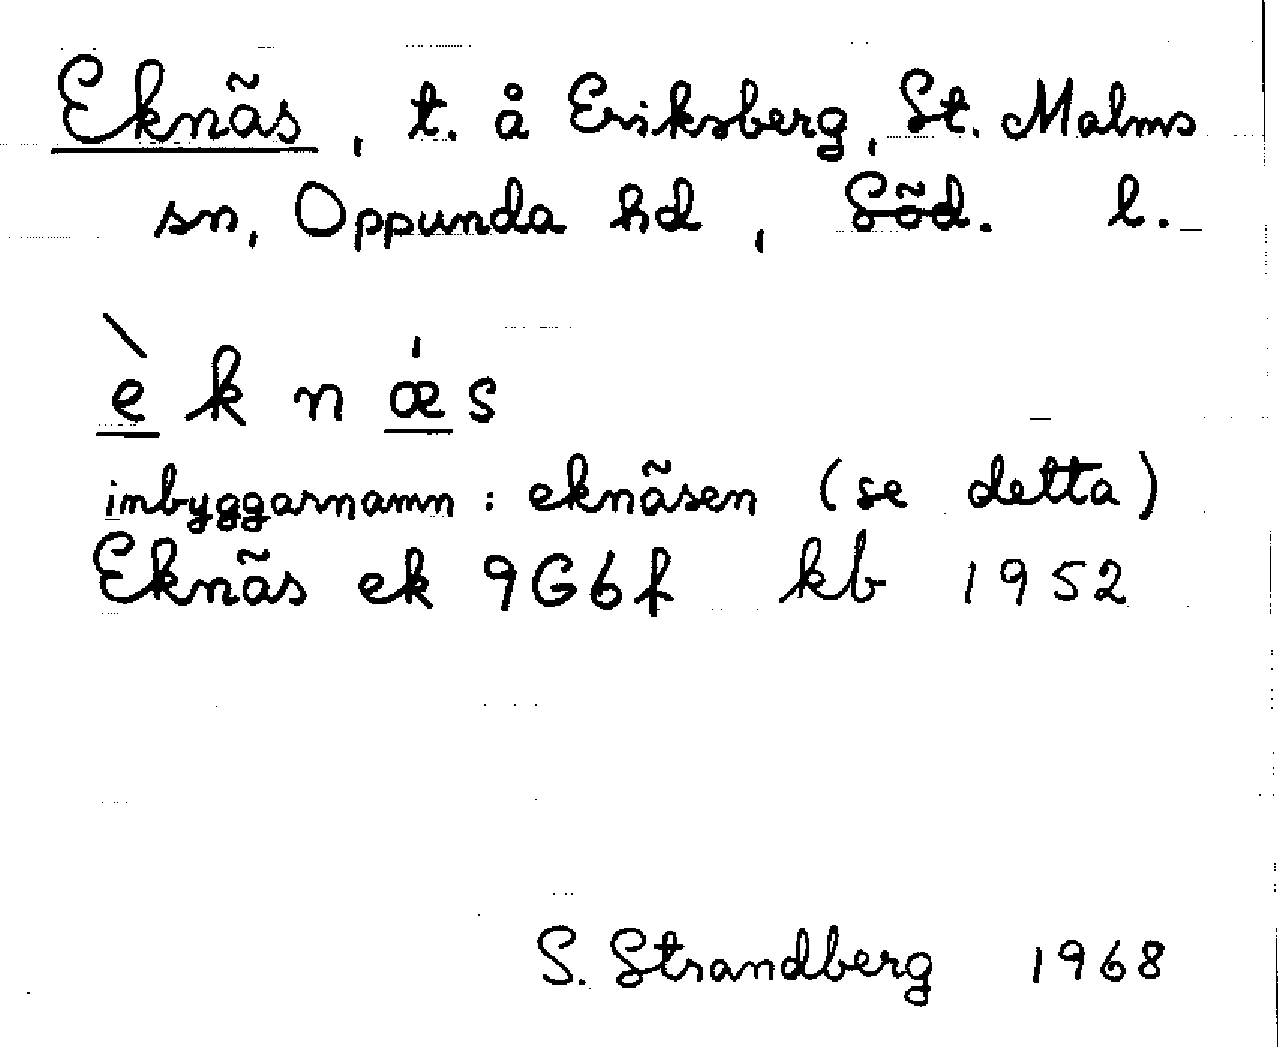 Eknäs, t. å Eriksberg, St. Malms
sn, Oppunda hd, Söd. l.
è k n ǽ s
inbyggarnamn: eknäsen (se detta)
Eknäs ek 9G6f kb 1952
S. Strandberg 1968